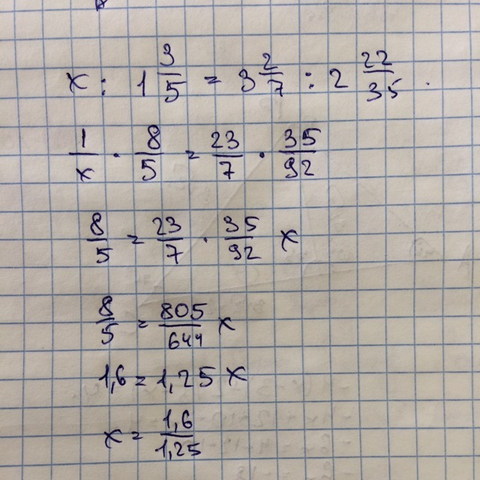 x : 1 3/5 = 3 2/7 : 2 22/35 .
1/x · 8/5 = 23/7 · 35/92
8/5 = 23/7 · 35/92 x
8/5 = 805/644 x
1,6 = 1,25 x
x = 1,6/1,25